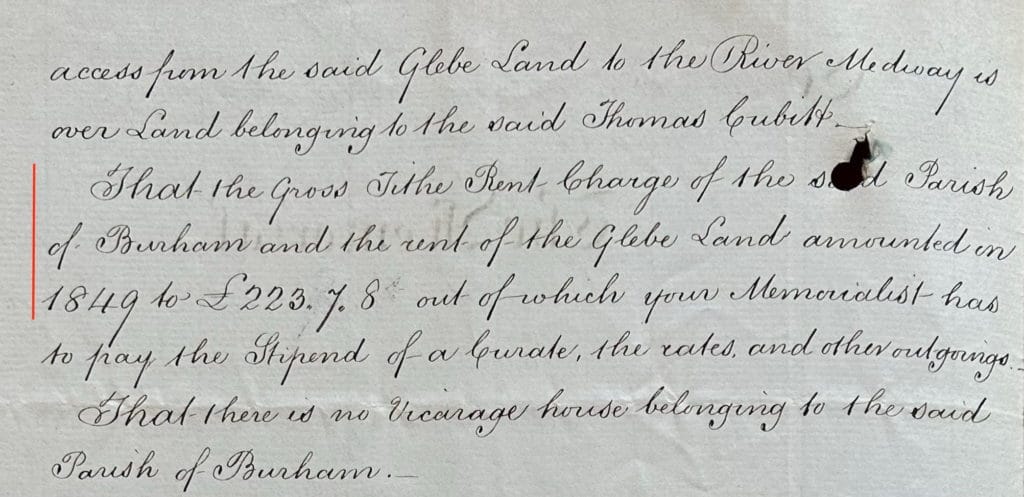 access from the said Glebe Land to the River Medway is
over Land belonging to the said Thomas Cubitt
That the Gross Tithe Rent Charge of the said Parish
of Burham and the rent of the Glebe Land amounted in
1849 to £223. 7. 8 out of which your Memorialist has
to pay the Stipend of a Curate, the rates, and other outgoings.
That there is no Vicarage house belonging to the said
Parish of Burham.—